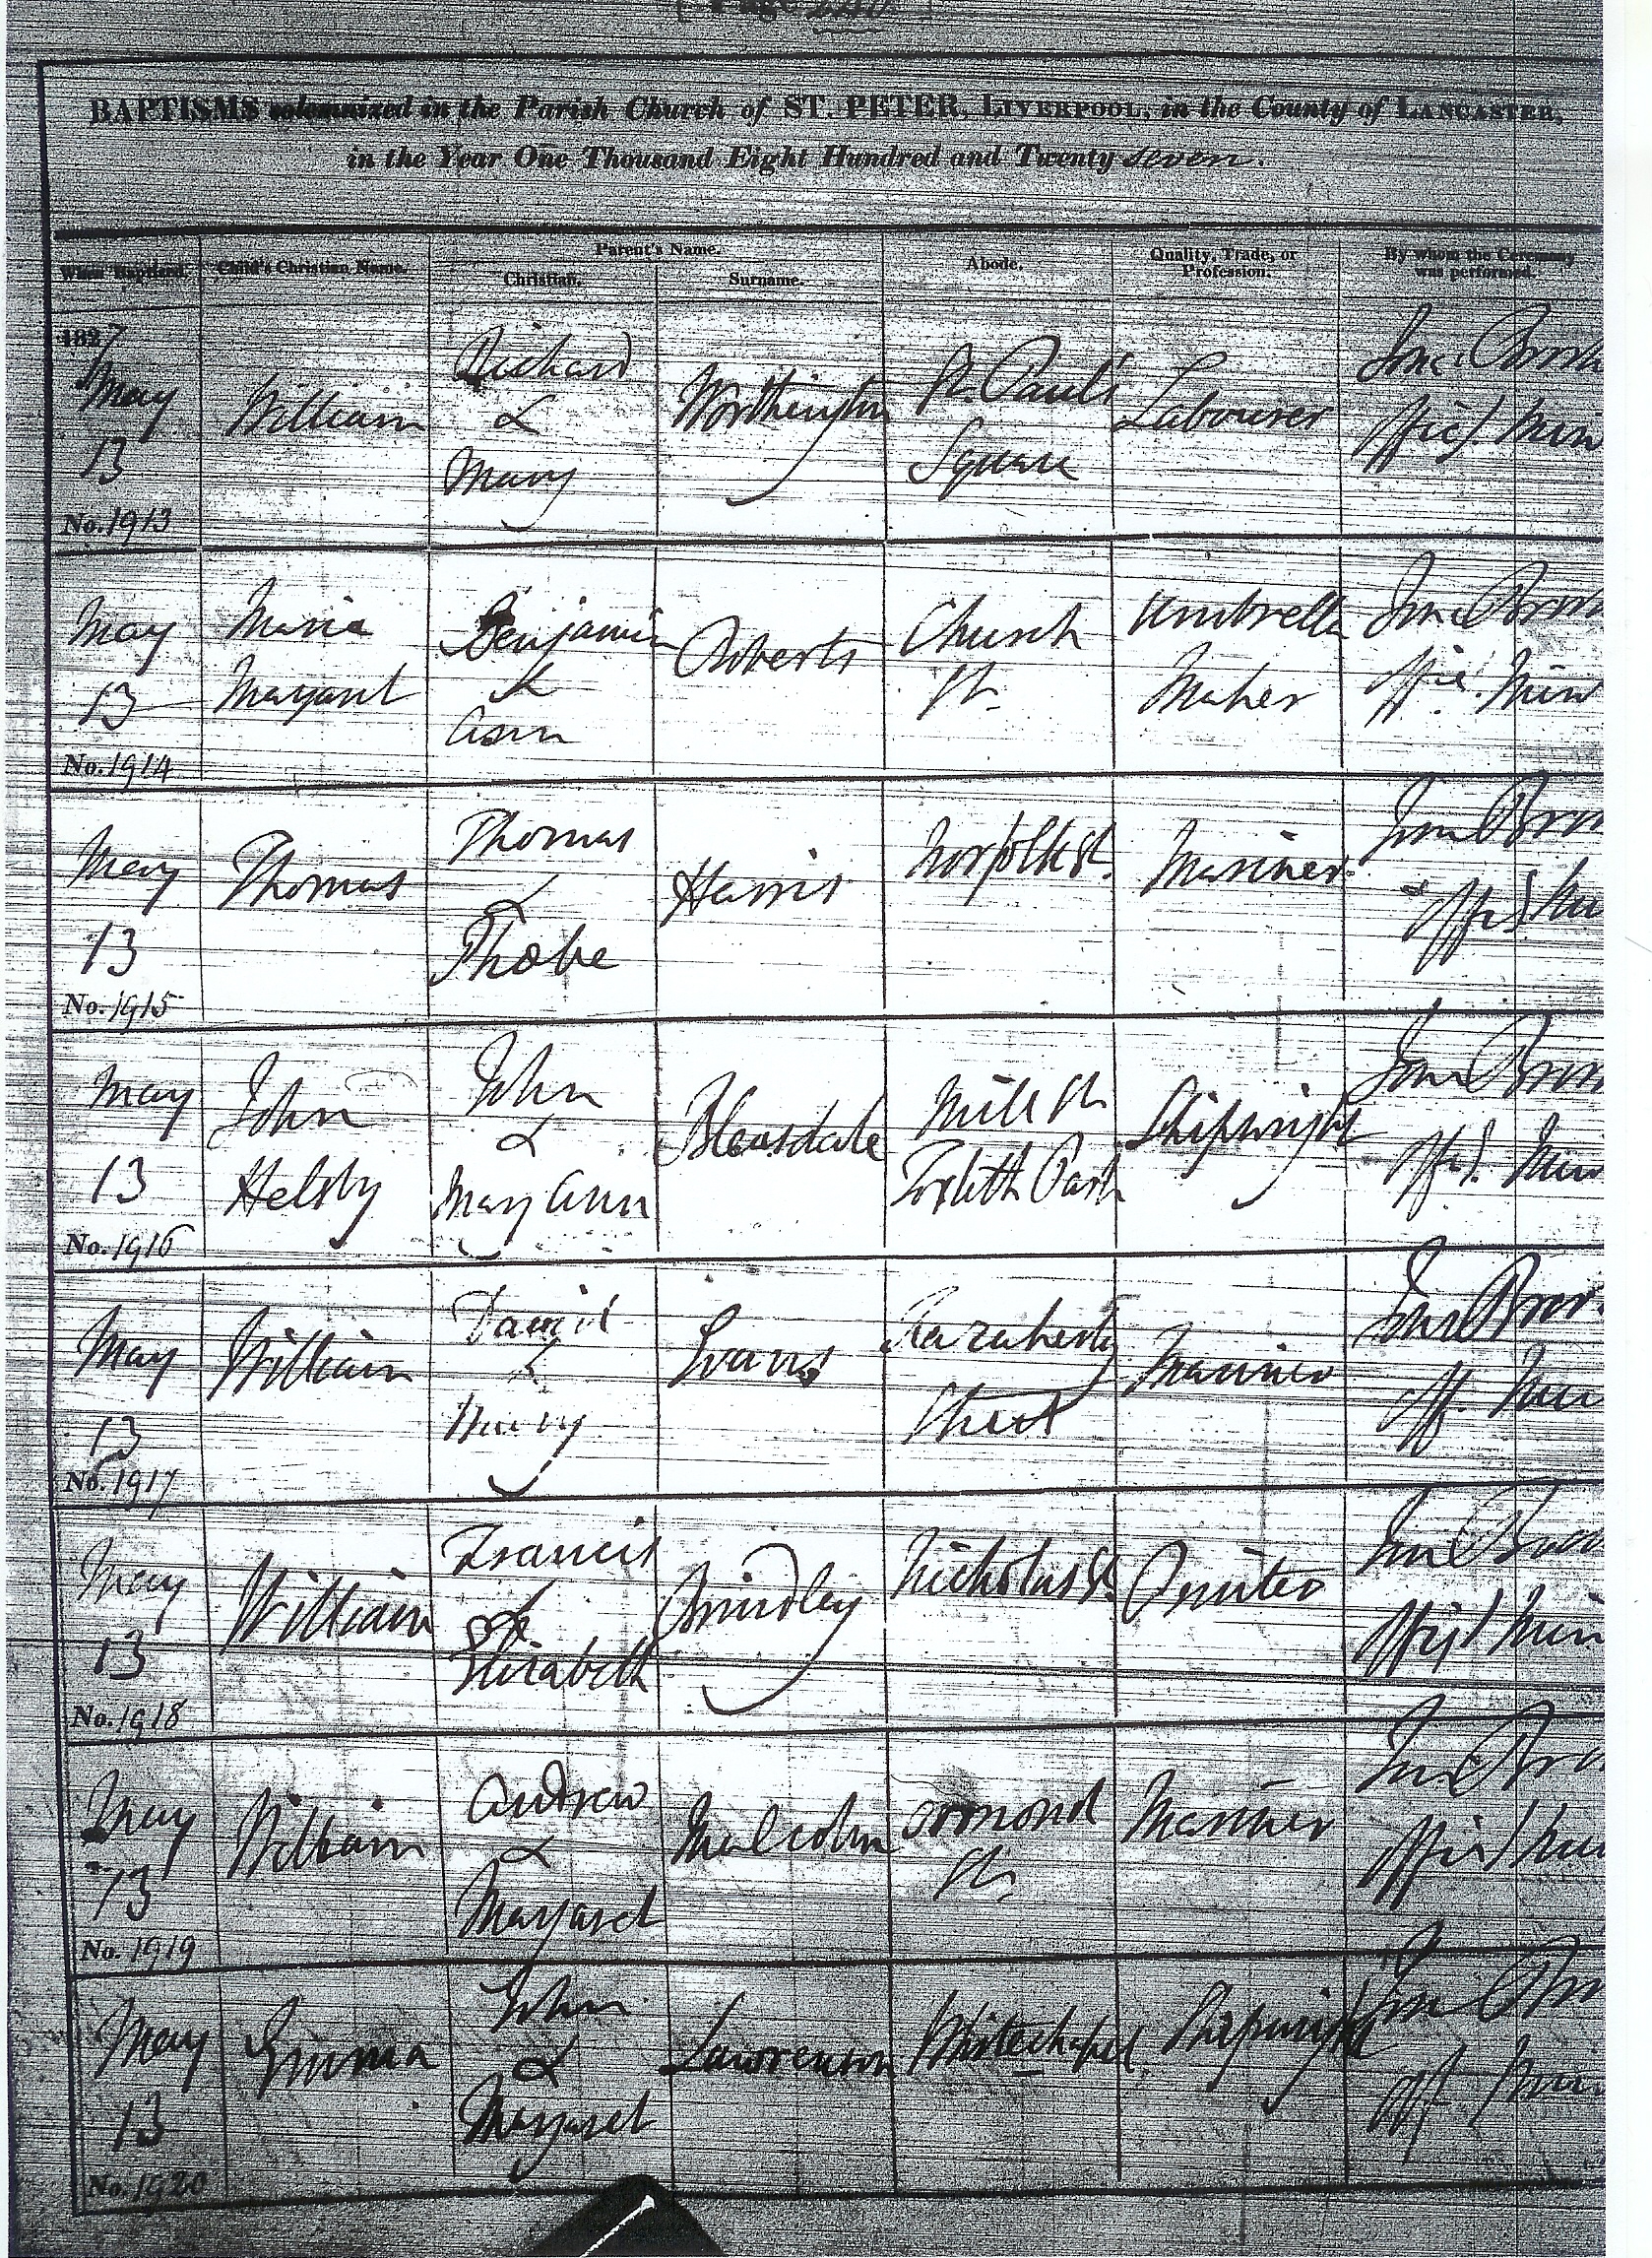 [Page 240.]
BAPTISMS solemnized in the Parish Church of ST. PETER, LIVERPOOL, in the County of LANCASTER,
in the Year One Thousand Eight Hundred and Twenty seven.
When Baptized.
Child's Christian Name.
Parent's Name.
Christian.
Surname.
Abode.
Quality, Trade, or
Profession.
By whom the Ceremony
was performed.
1827
May
13
No. 1913
William
Richard
&
Mary
Worthington
St. Paul's
Square
Labourer
May
13
No. 1914
Maria
Margaret
Benjamin
&
Ann
Roberts
Church
St.
Umbrella
Maker
May
13
No. 1915
Thomas
Thomas
&
Phobe
Harris
Norfolk St.
Mariner
May
13
No. 1916
John
Helsby
John
&
Mary Ann
Bleasdale
Mill St.
Toxteth Park
Shipwright
May
13
No. 1917
William
David
&
Mary
Evans
Street
Mariner
May
13
No. 1918
William
Francis
&
Elizabeth
Brindley
Nicholas St.
May
13
No. 1919
William
Andrew
&
Margaret
Malcolm
Ormond
St.
Mariner
May
13
No. 1920
Emma
John
&
Margaret
Lawrenson
Whitechapel
Shipwright